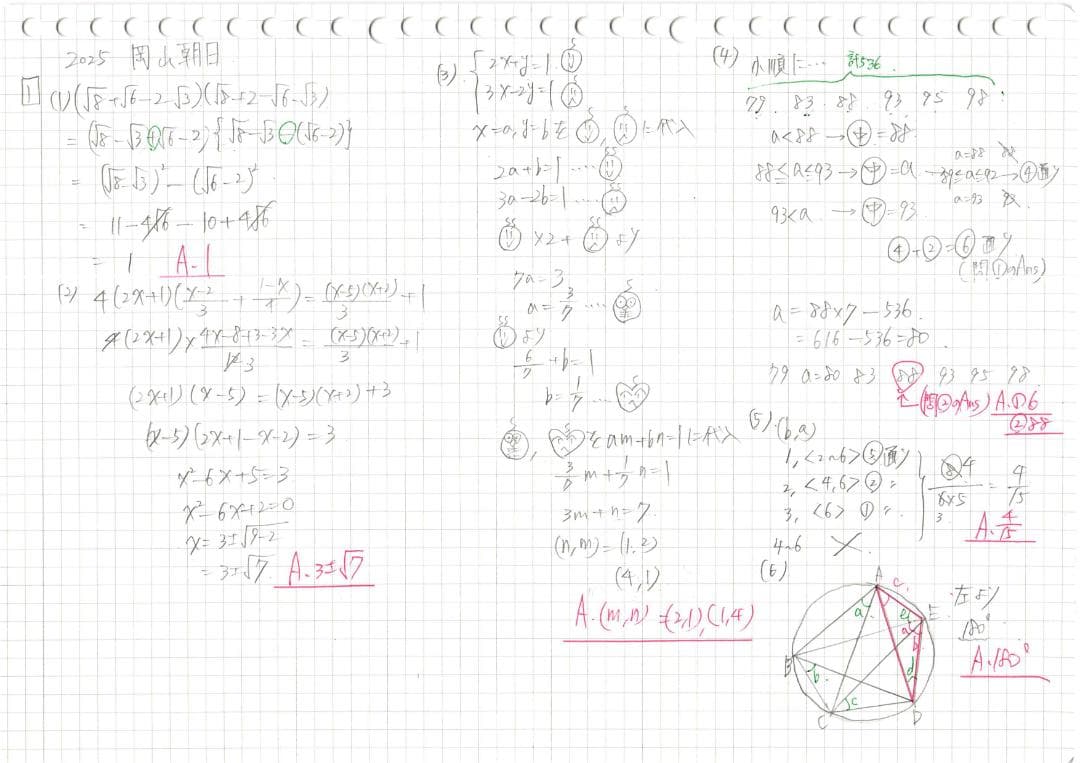 2025 岡山朝日
1 (1) (√8+√6-2-√3)(√8+2-√6-√3)
= (√8-√3+√6-2){√8-√3-(√6-2)}
= (√8-√3)²-(√6-2)²
= 11-4√6-10+4√6
= 1 A. 1
(2) 4(2x+1)(x-2/3 + 1-x/4) = (x-5)(x+2)/3 + 1
4(2x+1)×4x-8+3-3x/12 3 = (x-5)(x+2)/3 + 1
(2x+1)(x-5) = (x-5)(x+2)+3
(x-5)(2x+1-x-2) = 3
x²-6x+5=3
x²-6x+2=0
x=3±√9-2
=3±√7 A. 3±√7
(3) { 2x+y=1
3x-2y=1
x=a, y=bを , に代入
2a+b=1 ....
3a-2b=1 ....
×2+ より
7a=3
a=3/7 ....
より
6/7+b=1
b=1/7 ....
, をam+bn=1に代入
3/7m+1/7n=1
3m+n=7
(n,m)=(1,2)
(4,1)
A. (m,n)=(2,1),(1,4)
(4) 小順に… 計536
79. 83. 88. 93 95 98.
a<88→中=88.
88≦a≦93→中=a
a=88
89≦a≦92→④通り
a=93
93<a →中=93.
④+②=⑥通り
(問①のAns)
a=88×7-536.
=616-536=80
79 a=80 83 88 93 95 98.
(問②のAns) A.①6
②88
(5). (b,a)
1, <2~6> ⑤通り
2, <4,6> ② 〃
3, <6> ① 〃.
4~6 ×.
8 4/6×5 3 = 4/15
A. 4/15
(6)
A
B
C
D
E
a
c
e
a
b
d
b
c
左より
180°
A. 180°